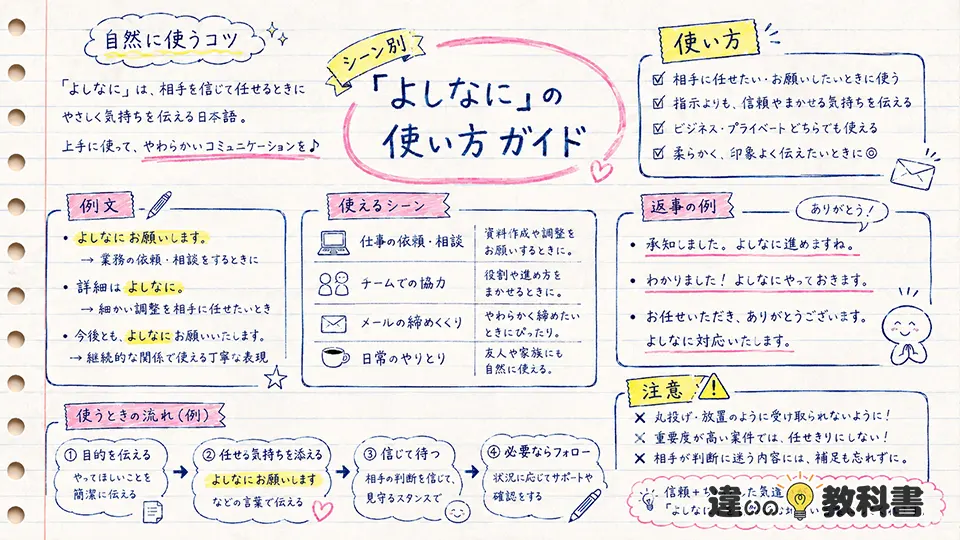 自然に使うコツ
「よしなに」は、相手を信じて任せるときに
やさしく気持ちを伝える日本語。
上手に使って、やわらかいコミュニケーションを♪
シーン別
「よしなに」の
使い方ガイド
使い方
☑ 相手に任せたい・お願いしたいときに使う
☑ 指示よりも、信頼やまかせる気持ちを伝える
☑ ビジネス・プライベートどちらでも使える
☑ 柔らかく、印象よく伝えたいときに◎
例文
• よしなにお願いします。
→ 業務の依頼・相談をするときに
• 詳細はよしなに。
→ 細かい調整を相手に任せたいとき
• 今後とも、よしなにお願いいたします。
→ 継続的な関係で使える丁寧な表現
使えるシーン
仕事の依頼・相談
資料作成や調整を
お願いするときに。
チームでの協力
役割や進め方を
まかせるときに。
メールの締めくくり
やわらかく締めたい
ときにぴったり。
日常のやりとり
友人や家族にも
自然に使える。
返事の例
ありがとう！
• 承知しました。よしなに進めますね。
• わかりました！よしなにやっておきます。
• お任せいただき、ありがとうございます。
よしなに対応いたします。
使うときの流れ（例）
① 目的を伝える
やってほしいことを
簡潔に伝える
→
② 任せる気持ちを添える
よしなにお願いします
などの言葉で伝える
→
③ 信じて待つ
相手の判断を信じて、
見守るスタンスで
→
④ 必要ならフォロー
状況に応じてサポートや
確認をする
注意
× 丸投げ・放置のように受け取られないように！
× 重要度が高い案件では、任せきりにしない！
× 相手が判断に迷う内容には、補足も忘れずに。
信頼＋
した気遣
「よしな
違いの教科書